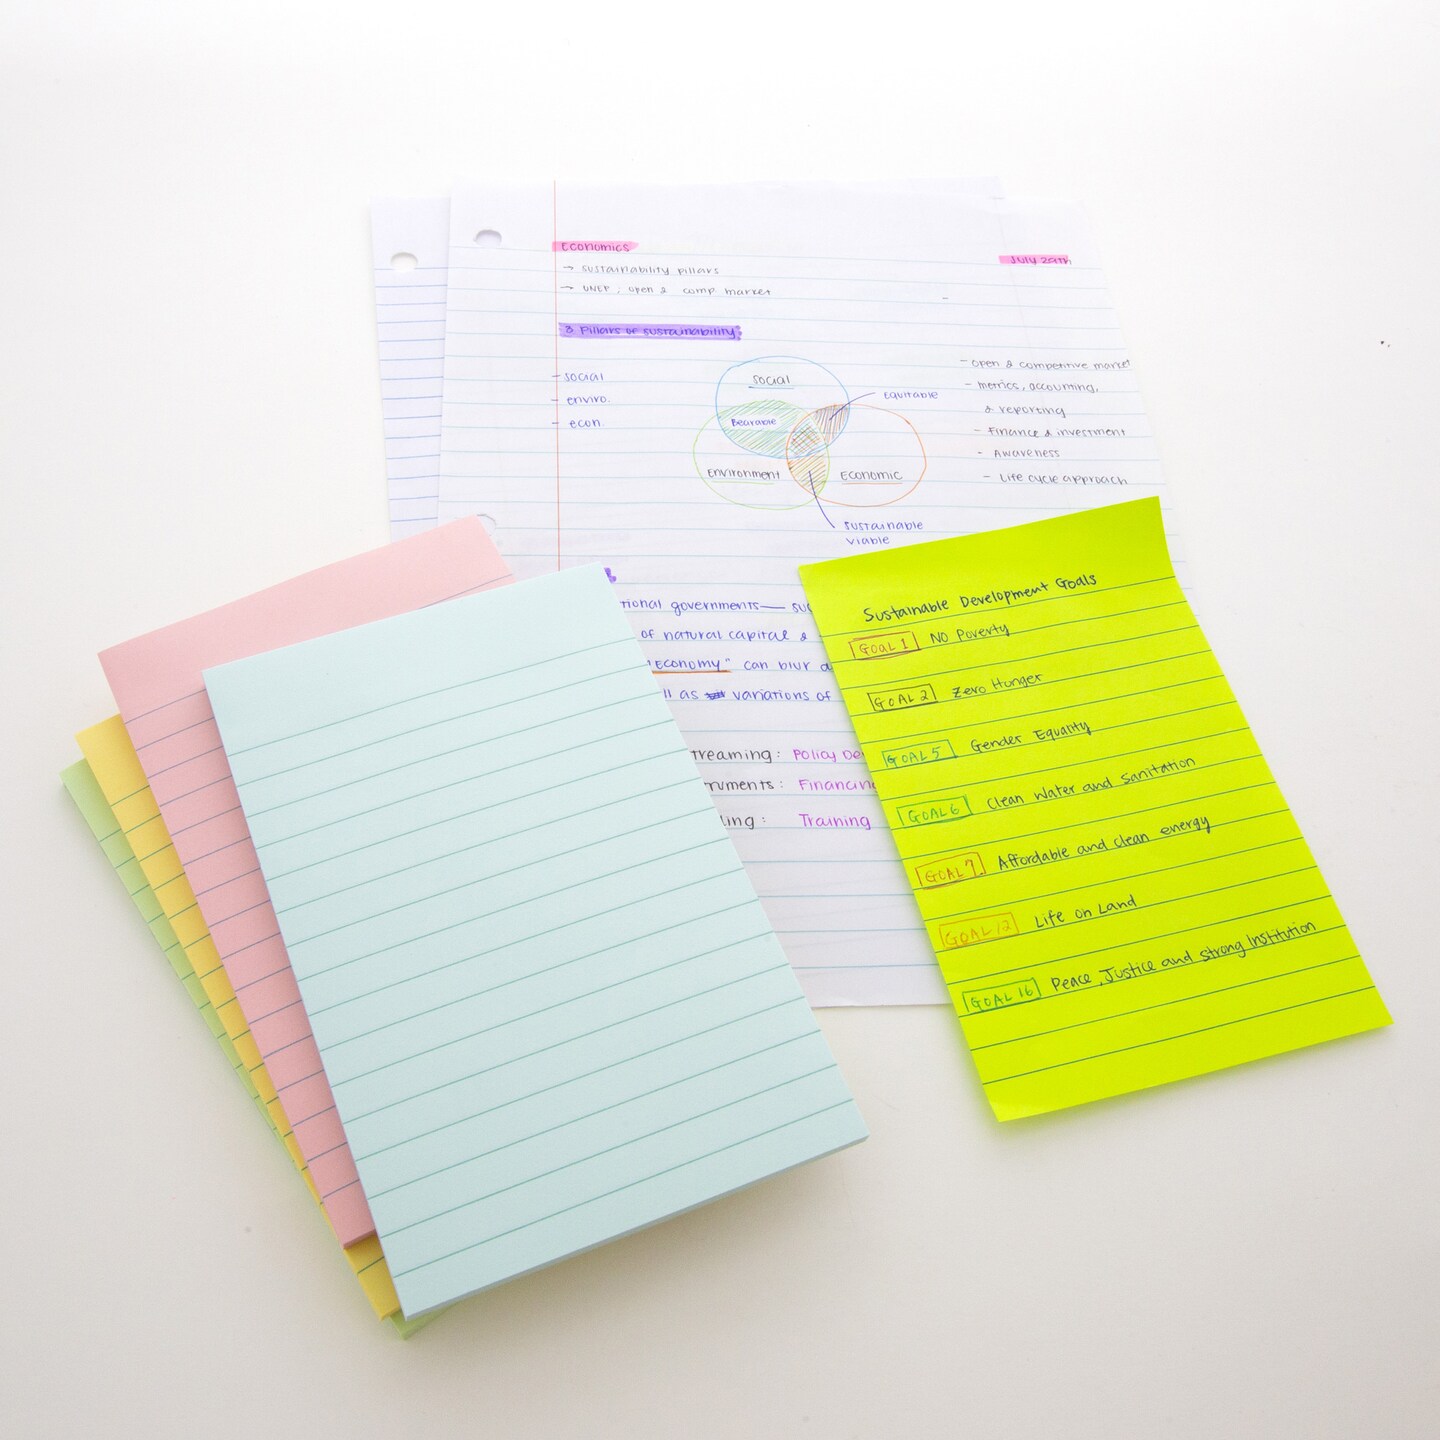 Economics
July 29th
→ sustainability pillars
→ UNEP; open & comp. market
3 Pillars of sustainability
- social
- enviro.
- econ.
Social
Bearable
Equitable
Environment
Economic
Sustainable
Viable
- open & competitive market
- metrics, accounting,
& reporting
- Finance & investment
- Awareness
- Life cycle approach
tional governments— su
of natural capital &
"Economy" can blur a
ll as variations of
treaming: Policy De
ruments: Financing
ling: Training
Sustainable Development Goals
GOAL 1 No Poverty
GOAL 2 Zero Hunger
GOAL 5 Gender Equality
GOAL 6 Clean Water and Sanitation
GOAL 7 Affordable and clean energy
GOAL 12 Life on Land
GOAL 16 Peace, Justice and strong Institution